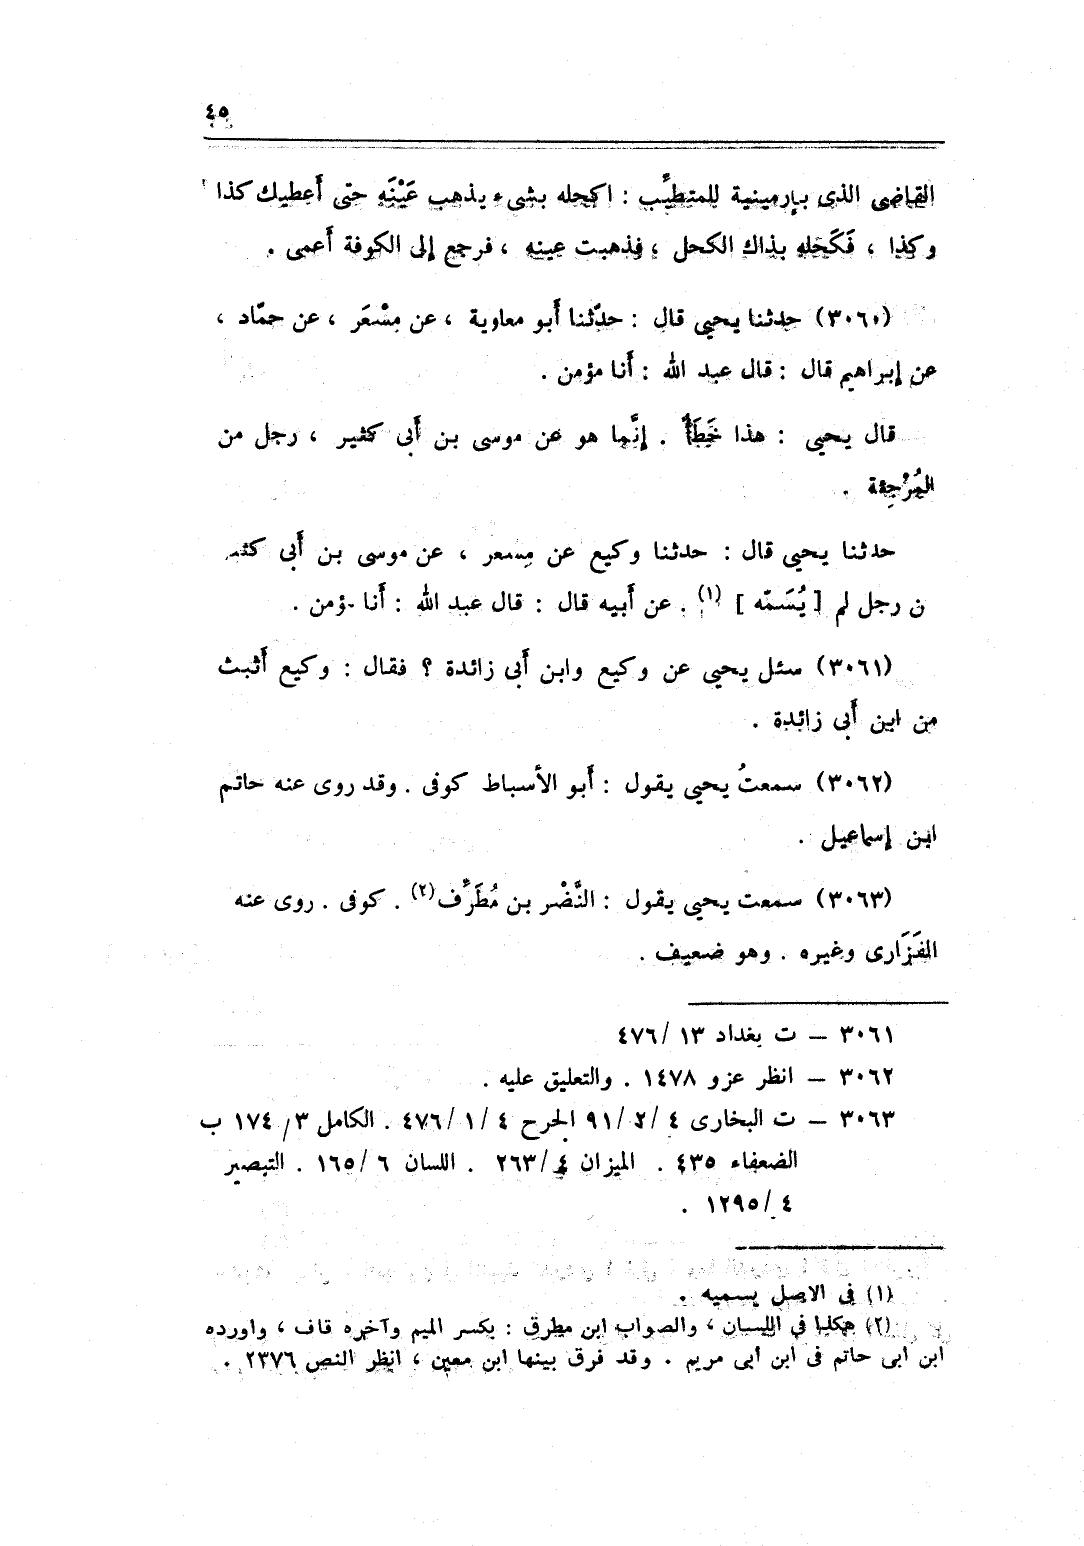 ٤٥
القاضى الذى بإرمينية للمتطبِّب : اكحله بشىء يذهب عَيْنَه حتى أعطيك كذا
وكذا ، فَكَحَله بذاك الكحل ، فذهبت عينه ، فرجع إلى الكوفة أعمى .
(٣٠٦٠) حدثنا يحيى قال : حدّثنا أبو معاوية ، عن مِسْعَر ، عن حمّاد ،
عن إبراهيم قال : قال عبد الله : أنا مؤمن .
قال يحيى : هذا خَطَأٌ . إنَّما هو عن موسى بن أبى كثير ، رجل من
المُرْجِئة .
حدثنا يحيى قال : حدثنا وكيع عن مِسعر ، عن موسى بن أبى كثير
ن رجل لم [ يُسَمّه ] (١) . عن أبيه قال : قال عبد الله : أنا مؤمن .
(٣٠٦١) سئل يحيى عن وكيع وابن أبى زائدة ؟ فقال : وكيع أثبث
من ابن أبى زائدة .
(٣٠٦٢) سمعتُ يحيى يقول : أبو الأسباط كوفى . وقد روى عنه حاتم
ابن إسماعيل .
(٣٠٦٣) سمعت يحيى يقول : النَّضْر بن مُطَرِّف (٢) . كوفى . روى عنه
الفَزَارى وغيره . وهو ضعيف .
٣٠٦١ – ت بغداد ١٣ /٤٧٦
٣٠٦٢ – انظر عزو ١٤٧٨ . والتعليق عليه .
٣٠٦٣ – ت البخارى ٤ /٢ /٩١ الجرح ٤ /١ /٤٧٦ . الكامل ٣ / ١٧٤ ب
الضعفاء ٤٣٥ . الميزان ٤ /٢٦٣ . اللسان ٦ /١٦٥ . التبصير
٤ /١٢٩٥ .
(١) فى الاصل يسميه .
(٢) هكذا فى اللسان ، والصواب ابن مطرق : بكسر الميم وآخره قاف ، واورده
ابن ابى حاتم فى ابن ابى مريم . وقد فرق بينها ابن معين ، انظر النص ٢٣٧٦ .